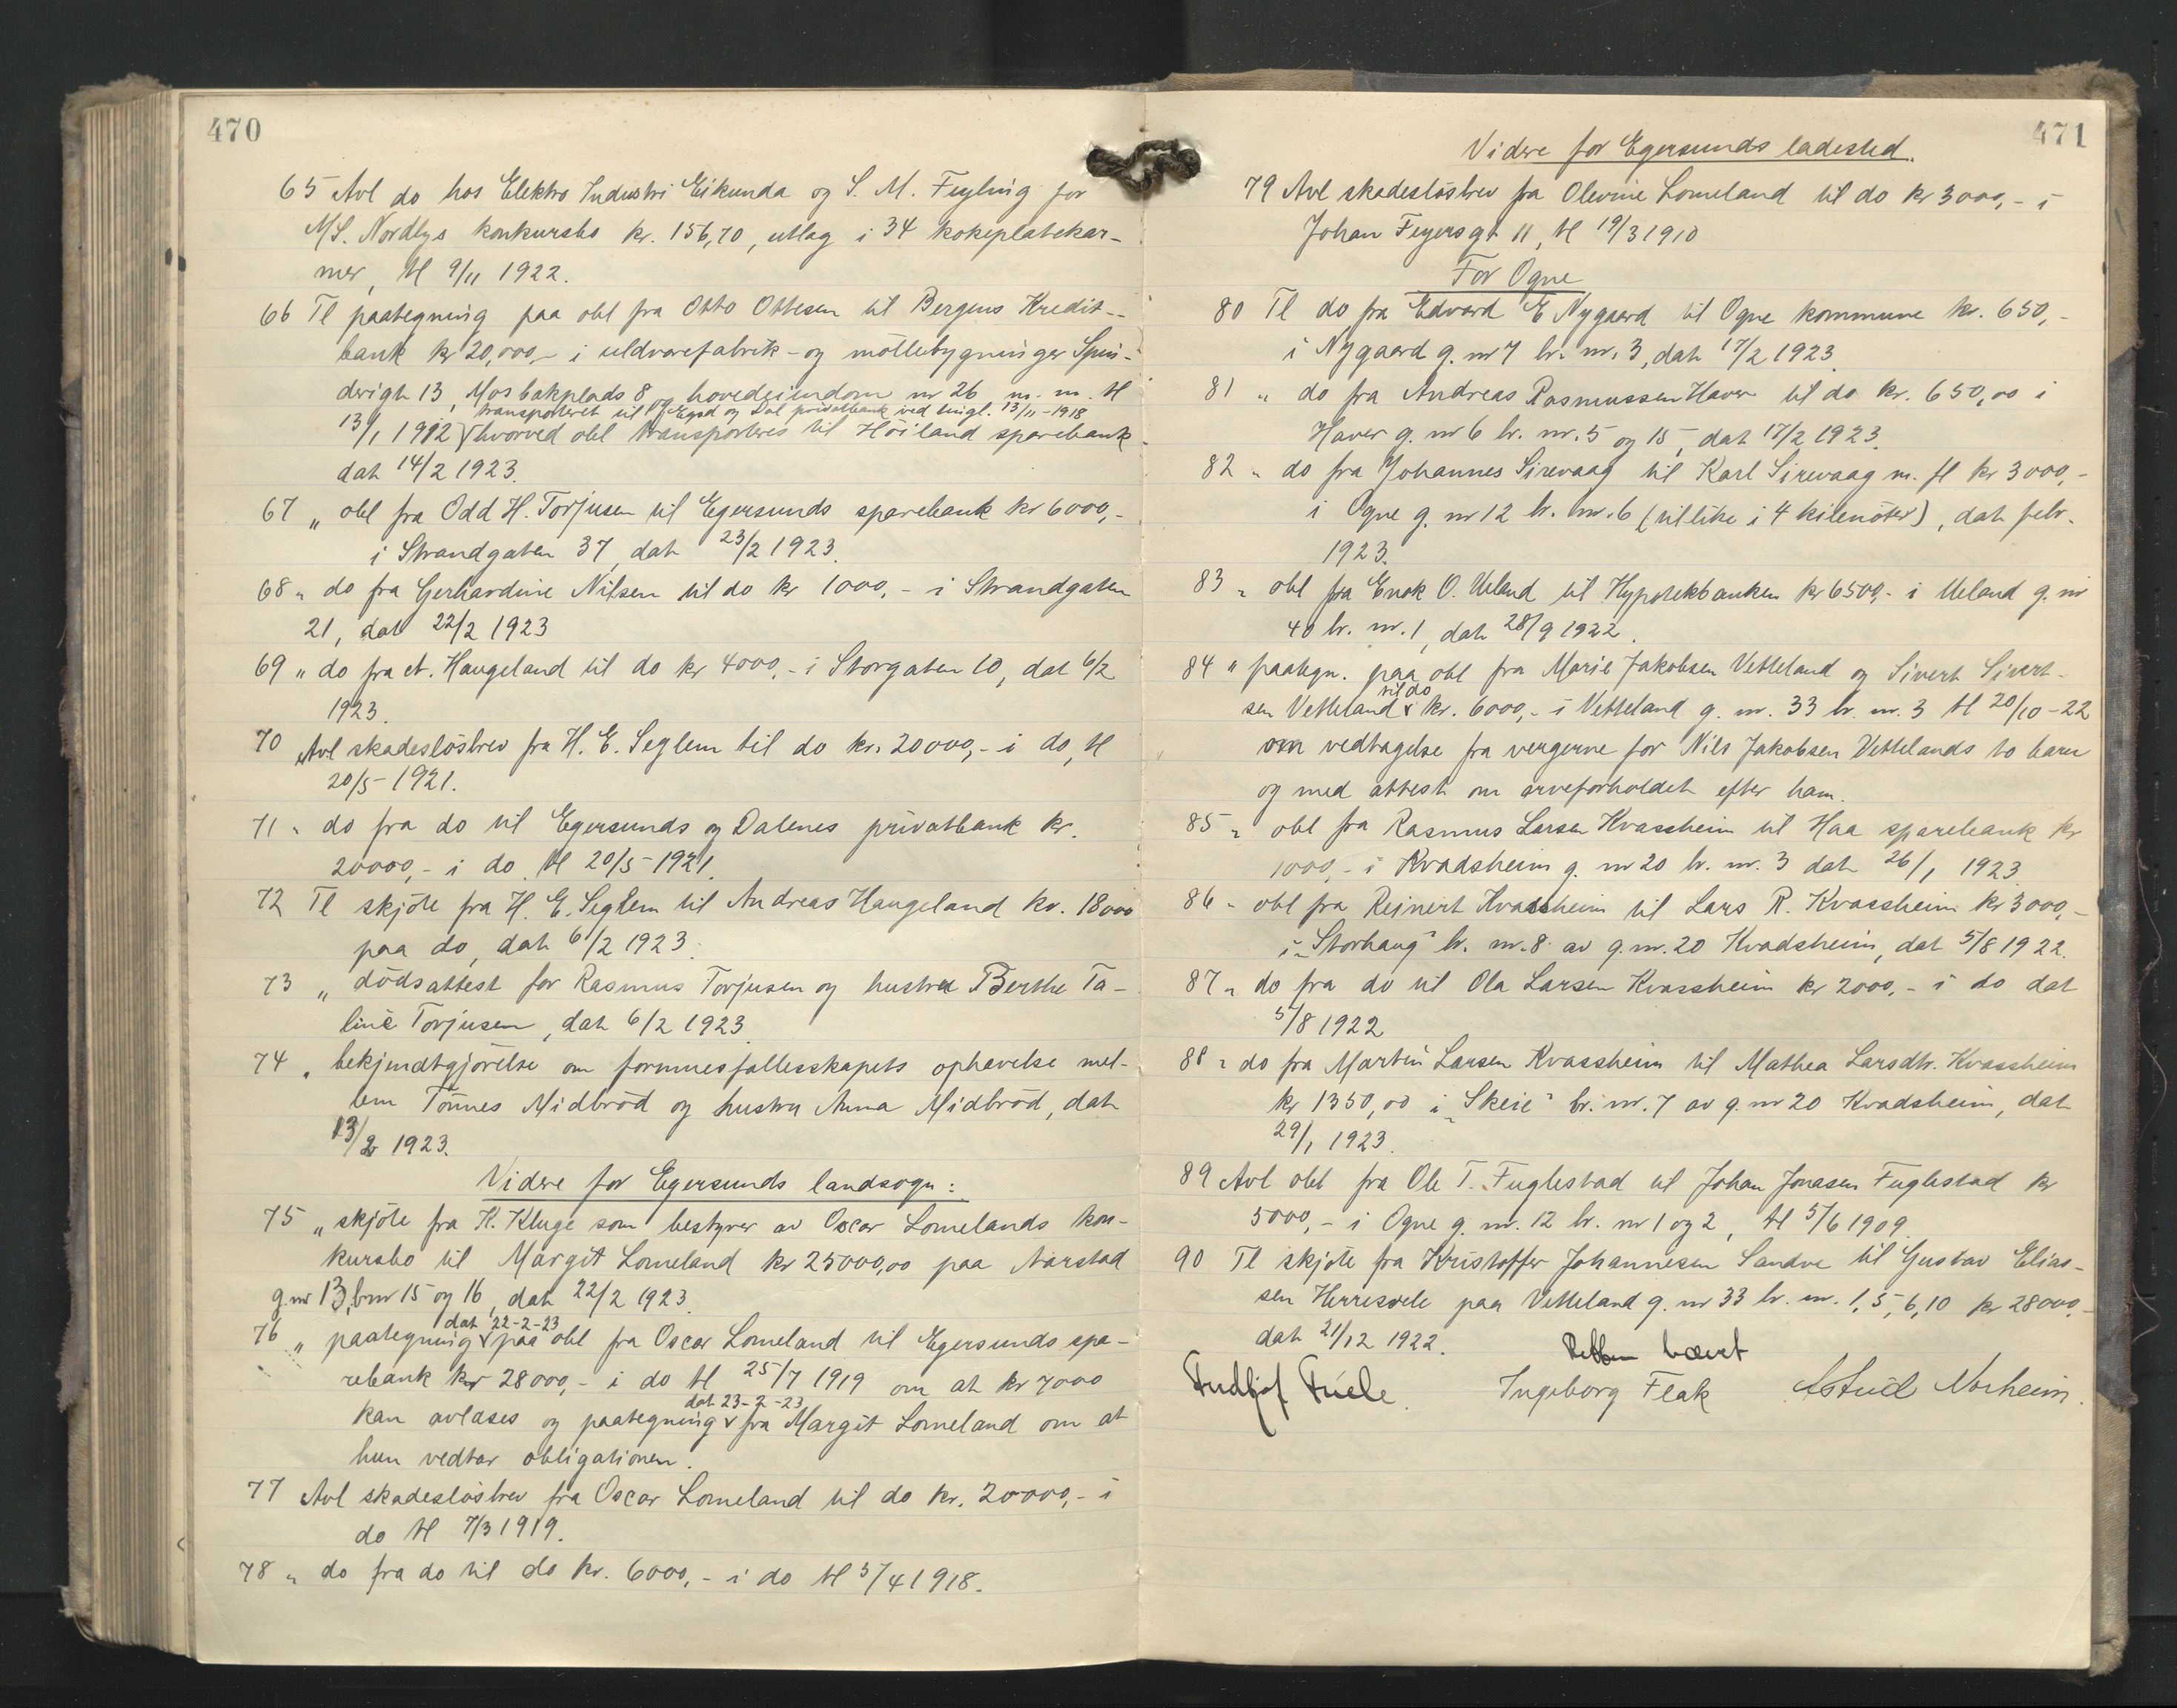 470
65 Avl do hos Elektro Industri Eikunda og S. M. Feyling for
M/S. Nordlys konkursbo kr. 156,70, utlag i 34 kokeplatekar-
mer, tl 9/11 1922.
66 Tl paategning paa obl fra Otto Ottesen til Bergens Kredit-
bank kr 20,000,- i uldvarefabrik- og möllebygninger Spin-
derigt 13, Mosbakplads 8 og hovedeiendom nr 26 m. m. tl
transporteret til Egsd og Dal privatbank ved tingl. 13/11-1918
13/1 1912 hvorved obl transporteres til Höiland sparebank
dat 14/2 1923.
67 " obl fra Odd H. Torjusen til Egersunds sparebank kr 6000,-
i Strandgaten 37, dat 23/2 1923.
68 " do fra Gerhardine Nilsen til do kr 1000,- i Strandgaten
21, dat 22/2 1923
69 " do fra A. Haugeland til do kr 4000,- i Storgaten 10, dat 6/2
1923.
70 Avl skadeslösbrev fra H. E. Seglem til do kr. 20000,- i do, tl
20/5-1921.
71 " do fra do til Egersunds og Dalenes privatbank kr.
20000,- i do tl 20/5-1921.
72 Tl skjöte fra H. E. Seglem til Andreas Haugeland kr. 18000
paa do, dat 6/2 1923.
73 " dödsattest for Rasmus Torjusen og hustru Berthe Ta-
line Torjusen, dat 6/2 1923.
74 " bekjendtgjörelse om formuesfællesskapets ophævelse mel-
lem Tönnes Midbröd og hustru Anna Midbröd, dat
13/2 1923.
Videre for Egersunds landsogn:
75 " skjöte fra K. Kluge som bestyrer av Oscar Lomelands kon-
kursbo til Margit Lomeland kr 25000,00 paa Aarstad
g.nr 13, bnr 15 og 16, dat 22/2 1923.
dat 22-2-23
76 " paategning paa obl fra Oscar Lomeland til Egersunds spa-
rebank kr 28000,- i do tl 25/7 1919 om at kr 7000
dat 23-2-23
kan avlæses og paategning fra Margit Lomeland om at
hun vedtar obligationen.
77 Avl skadeslösbrev fra Oscar Lomeland til do kr. 20000,- i
do tl 7/3 1919.
78 " do fra do til do kr. 6000,- i do tl 5/4 1918.
471
Videre for Egersunds ladested.
79 Avl skadeslösbrev fra Olevine Lomeland til do kr 3000,- i
Johan Feyersgt 11, tl 19/3 1910
For Ogne
80 Tl do fra Edvard E Nygaard til Ogne kommune kr. 650,-
i Nygaard g. nr 7 br. nr. 3, dat 17/2 1923.
81 " do fra Andreas Rasmussen Haver til do kr. 650,00 i
Haver g. nr 6 br. nr. 5 og 15, dat 17/2 1923.
82 " do fra Johannes Sirevaag til Karl Sirevaag m. fl kr 3000,-
i Ogne g. nr 12 br. nr. 6 (tillike i 4 kilenöter), dat febr.
1923.
83 " obl fra Enok O. Ueland til Hypotekbanken kr 6500,- i Ueland g. nr
40 br. nr. 1, dat 28/9 1922.
84 " paategn. paa obl fra Marie Jakobsen Vetteland og Sivert Sivert-
til do
sen Vetteland kr. 6000,- i Vetteland g. nr. 33 br. nr. 3 tl 20/10-22
om vedtagelse fra vergerne for Nils Jakobsen Vettelands to barn
og med attest om arveforholdet efter ham.
85 " obl fra Rasmus Larsen Kvassheim til Haa sparebank kr
1000,- i Kvadsheim g. nr 20 br. nr. 3 dat 26/1 1923.
86 " obl fra Reinert Kvassheim til Lars R. Kvassheim kr 3000,-
i "Storhaug" br. nr. 8 av g.nr. 20 Kvadsheim, dat 5/8 1922.
87 " do fra do til Ola Larsen Kvassheim kr 2000,- i do dat
5/8 1922
88 " do fra Martin Larsen Kvassheim til Mathea Larsdtr. Kvassheim
kr 1350,00 i "Skeie" br. nr. 7 av g. nr 20 Kvadsheim, dat
29/1 1923.
89 Avl obl fra Ole T. Fuglestad til Johan Jonasen Fuglestad kr
5000,- i Ogne g. nr. 12 br. nr 1 og 2, tl 5/6 1909.
90 Tl skjöte fra Kristoffer Johannesen Sandve til Gustav Elias-
sen Herresvele paa Vetteland g. nr 33 br. nr. 1, 5, 6, 10 kr 28000,-
dat 21/12 1922.
Retten hævet
Fridtjof Friele. Ingeborg Flak Astrid Norheim.